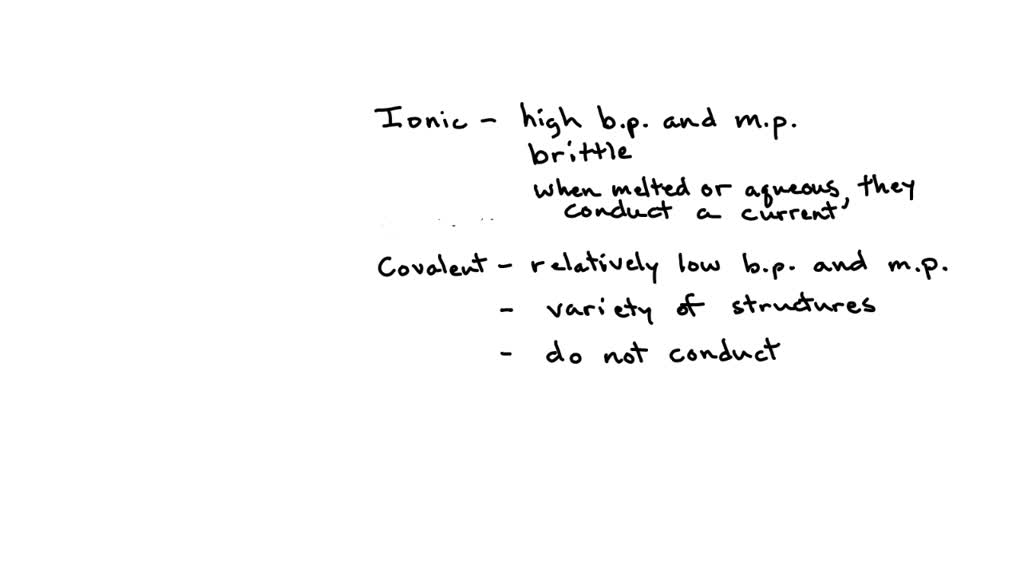 Ionic - high b.p. and m.p.
brittle
when melted or aqueous, they
conduct a current
Covalent - relatively low b.p. and m.p.
- variety of structures
- do not conduct